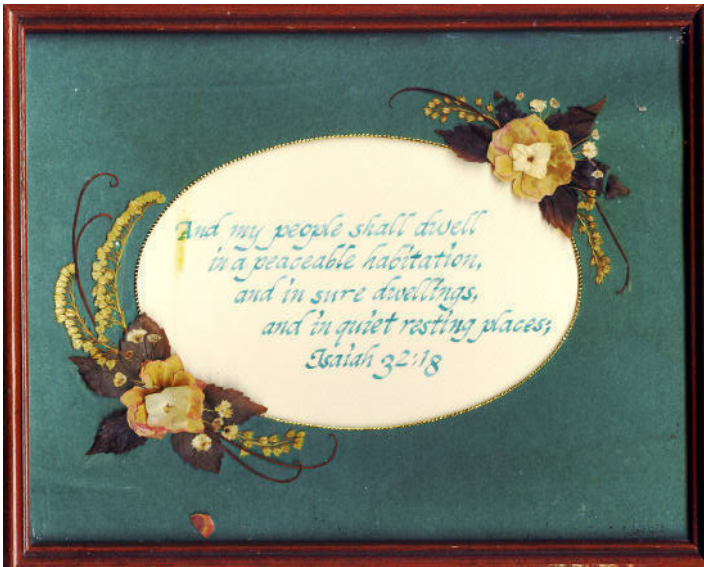 And my people shall dwell
in a peaceable habitation,
and in sure dwellings,
and in quiet resting places;
Isaiah 32:18